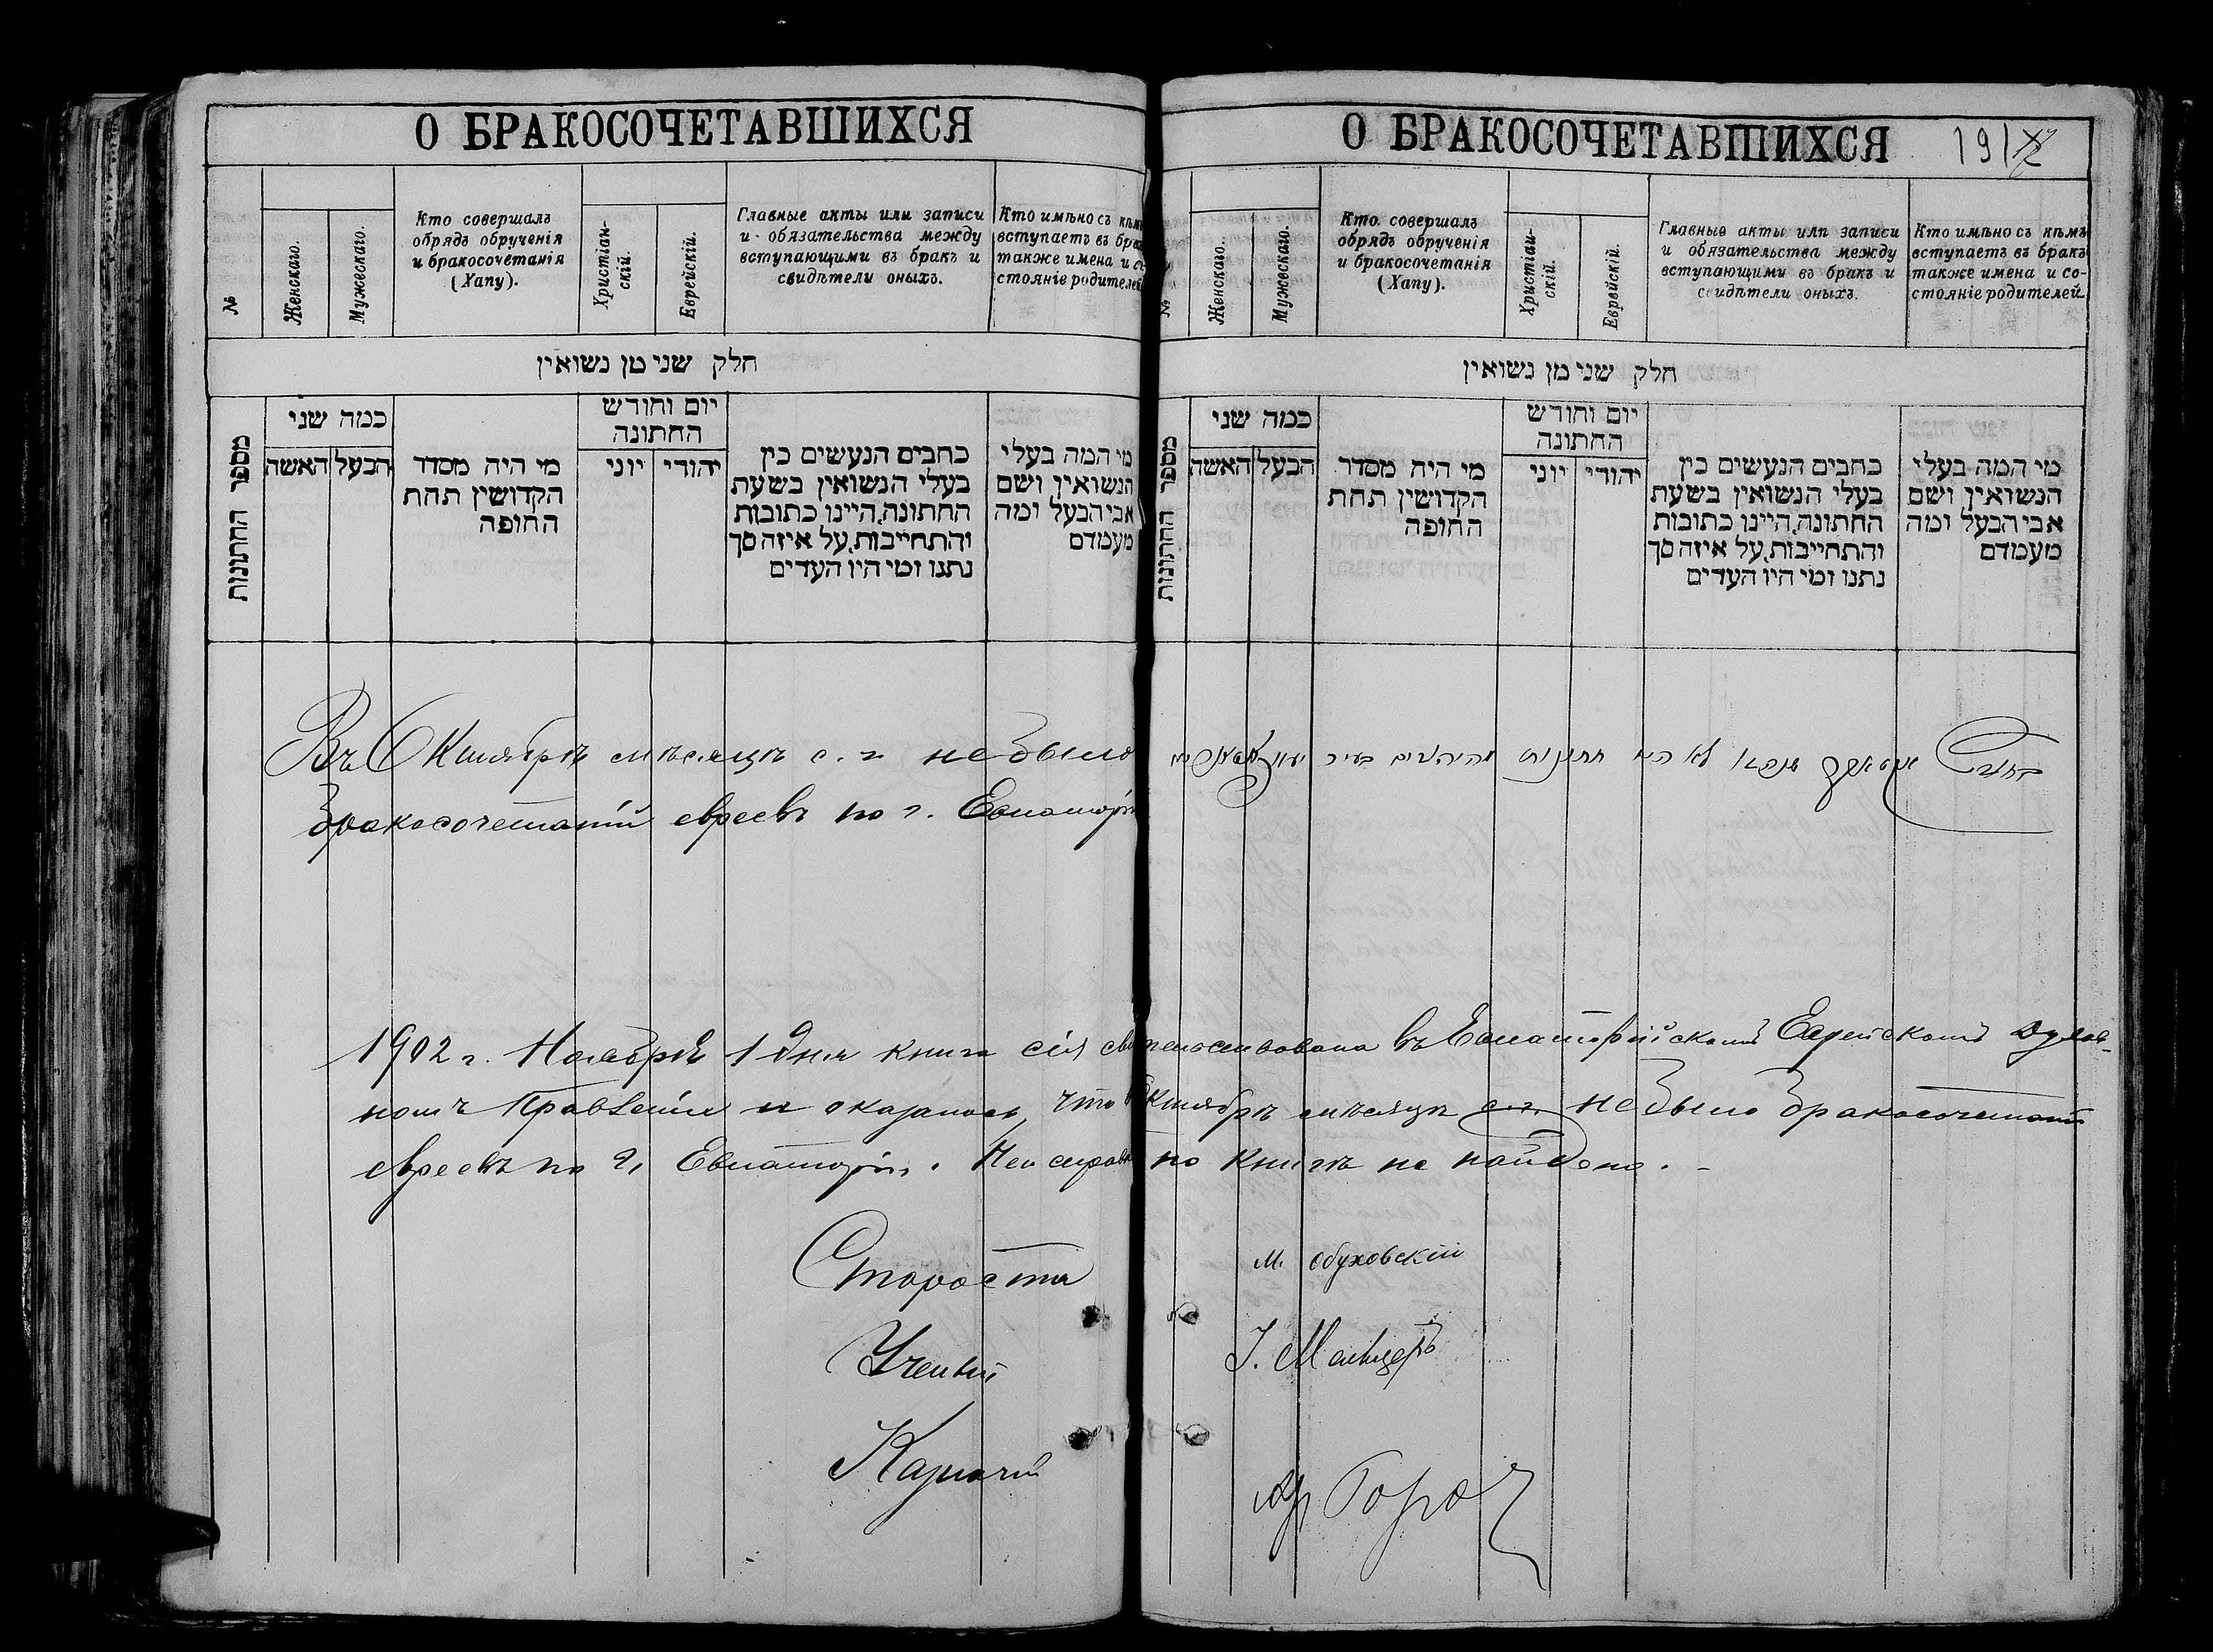 О БРАКОСОЧЕТАВШИХСЯ
№
Женскаго.
Мужескаго.
Кто совершалъ
обрядъ обрученія
и бракосочетанія
(Хапу).
Христіан-
скій.
Еврейскій.
Главные акты или записи
и обязательства между
вступающими въ бракъ и
свидѣтели оныхъ.
Кто имѣно съ кѣмъ
вступаетъ въ бра
также имена и с
стояніе родителей
חלק שני מן נשואין
מספר החתונות
כמה שני
האשה
הבעל
מי היה מסדר
הקדושין תחת
החופה
יום וחודש
החתונה
יוני
יהודי
כתבים הנעשים בין
בעלי הנשואין בשעת
החתונה, היינו כתובות
והתחייבות, על איזה סך
נתנו ומי היו העדים
מי המה בעלי
הנשואין ושם
אבי הבעל ומה
מעמדם
Въ Октябрѣ мѣсяцѣ с. г. небыло
бракосочетаній евреевъ по г. Евпаторіи
О БРАКОСОЧЕТАВШИХСЯ
191
№
Женскаго.
Мужескаго.
Кто совершалъ
обрядъ обрученія
и бракосочетанія
(Хапу).
Христіан-
скій.
Еврейскій.
Главные акты или записи
и обязательства между
вступающими въ бракъ и
свидѣтели оныхъ.
Кто имѣно съ кѣмъ
вступаетъ въ бракъ
также имена и со-
стояніе родителей
חלק שני מן נשואין
מספר החתונות
כמה שני
האשה
הבעל
מי היה מסדר
הקדושין תחת
החופה
יום וחודש
החתונה
יוני
יהודי
כתבים הנעשים בין
בעלי הנשואין בשעת
החתונה, היינו כתובות
והתחייבות, על איזה סך
נתנו ומי היו העדים
מי המה בעלי
הנשואין ושם
אבי הבעל ומה
מעמדם
לא היו
1902 г. Ноября 1 дня книга сія свидетельствована въ Евпаторійскомъ Еврейскомъ Духов-
номъ Правленіи и оказалось, что въ Октябрѣ мѣсяцѣ с. г. небыло бракосочетаній
евреевъ по г. Евпаторіи. Неисправн по книгѣ не найдено. -
Староста М. Обуховскій
Ученый І. Мельцеръ
Казначей